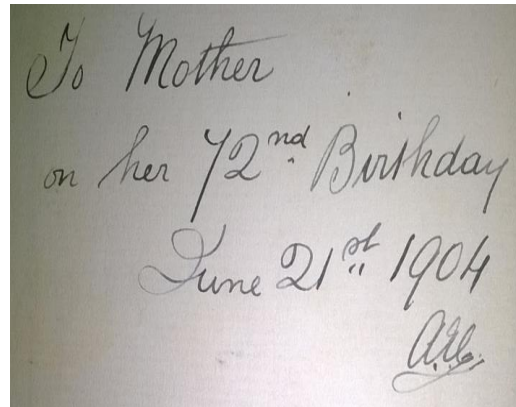 To Mother
on her 72nd Birthday
June 21st 1904